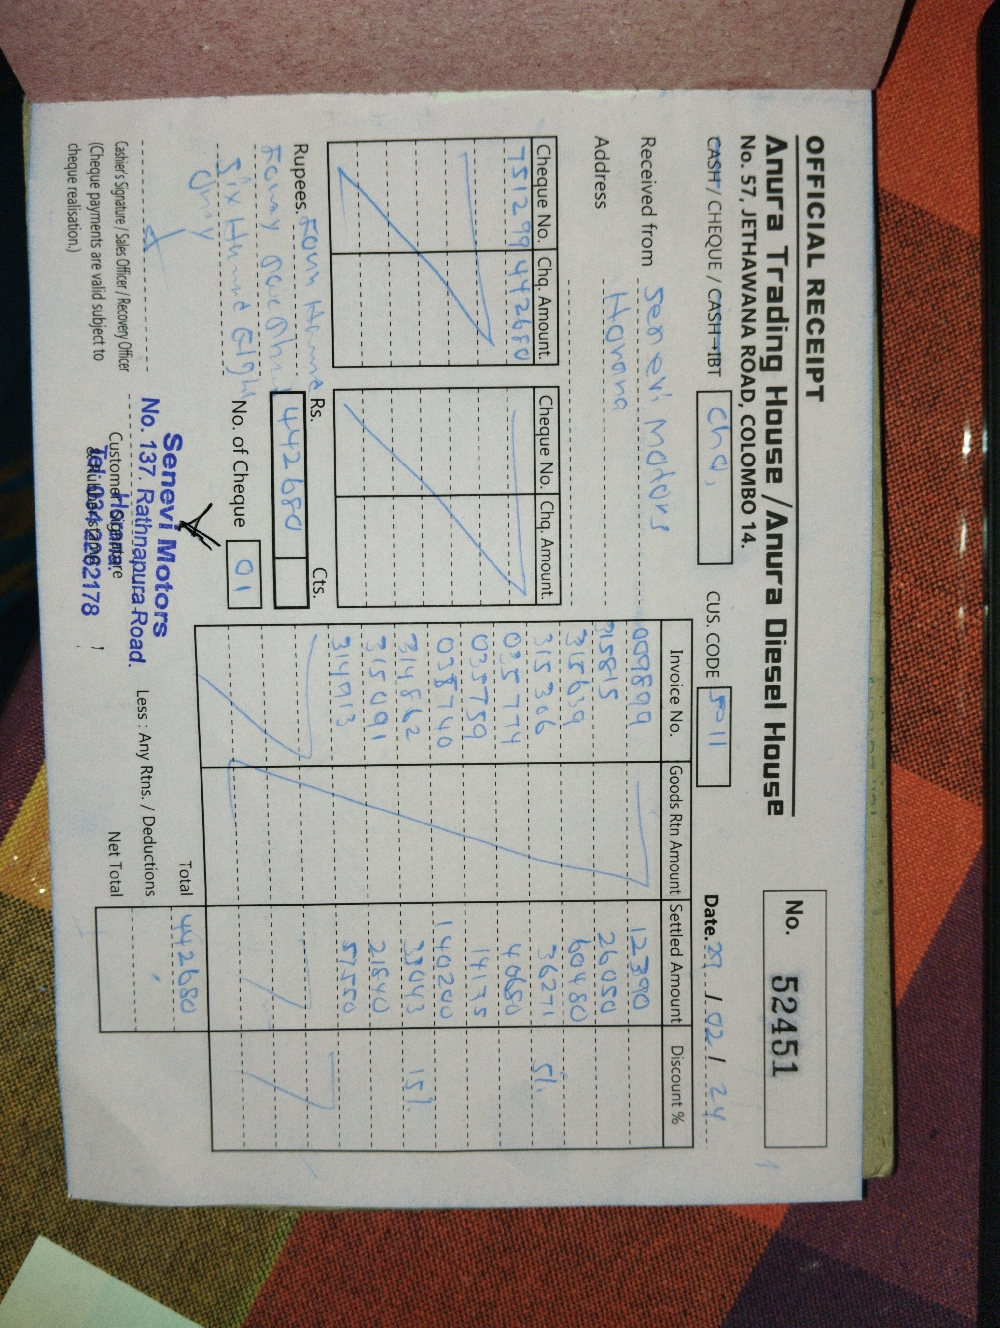 OFFICIAL RECEIPT
Anura Trading House / Anura Diesel House
No. 57, JETHAWANA ROAD, COLOMBO 14.
No. 52451
CASH / CHEQUE / CASH→IBT chq, CUS. CODE 5011 Date. 29 / 02 / 24
Received from Senevi Motors
Address Horana
Cheque No. Chq. Amount. Cheque No. Chq. Amount.
751299 442680
Invoice No. Goods Rtn Amount Settled Amount Discount %
009899 12390
315815 26050
315639 60480
315306 36271 5%
035774 40680
035759 14175
038740 140200
314862 33043 15%
315091 21840
314913 57550
Rs. Cts.
Rupees. Four Hund
442680
six Hund Eigh
only
No. of Cheque 01
Total 442680
Less : Any Rtns. / Deductions
Net Total
Cashier's Signature / Sales Officer / Recovery Officer
(Cheque payments are valid subject to
cheque realisation.)
Customer Signature
Senevi Motors
No. 137, Rathnapura Road.
Horana.
Tel: 034-2262178